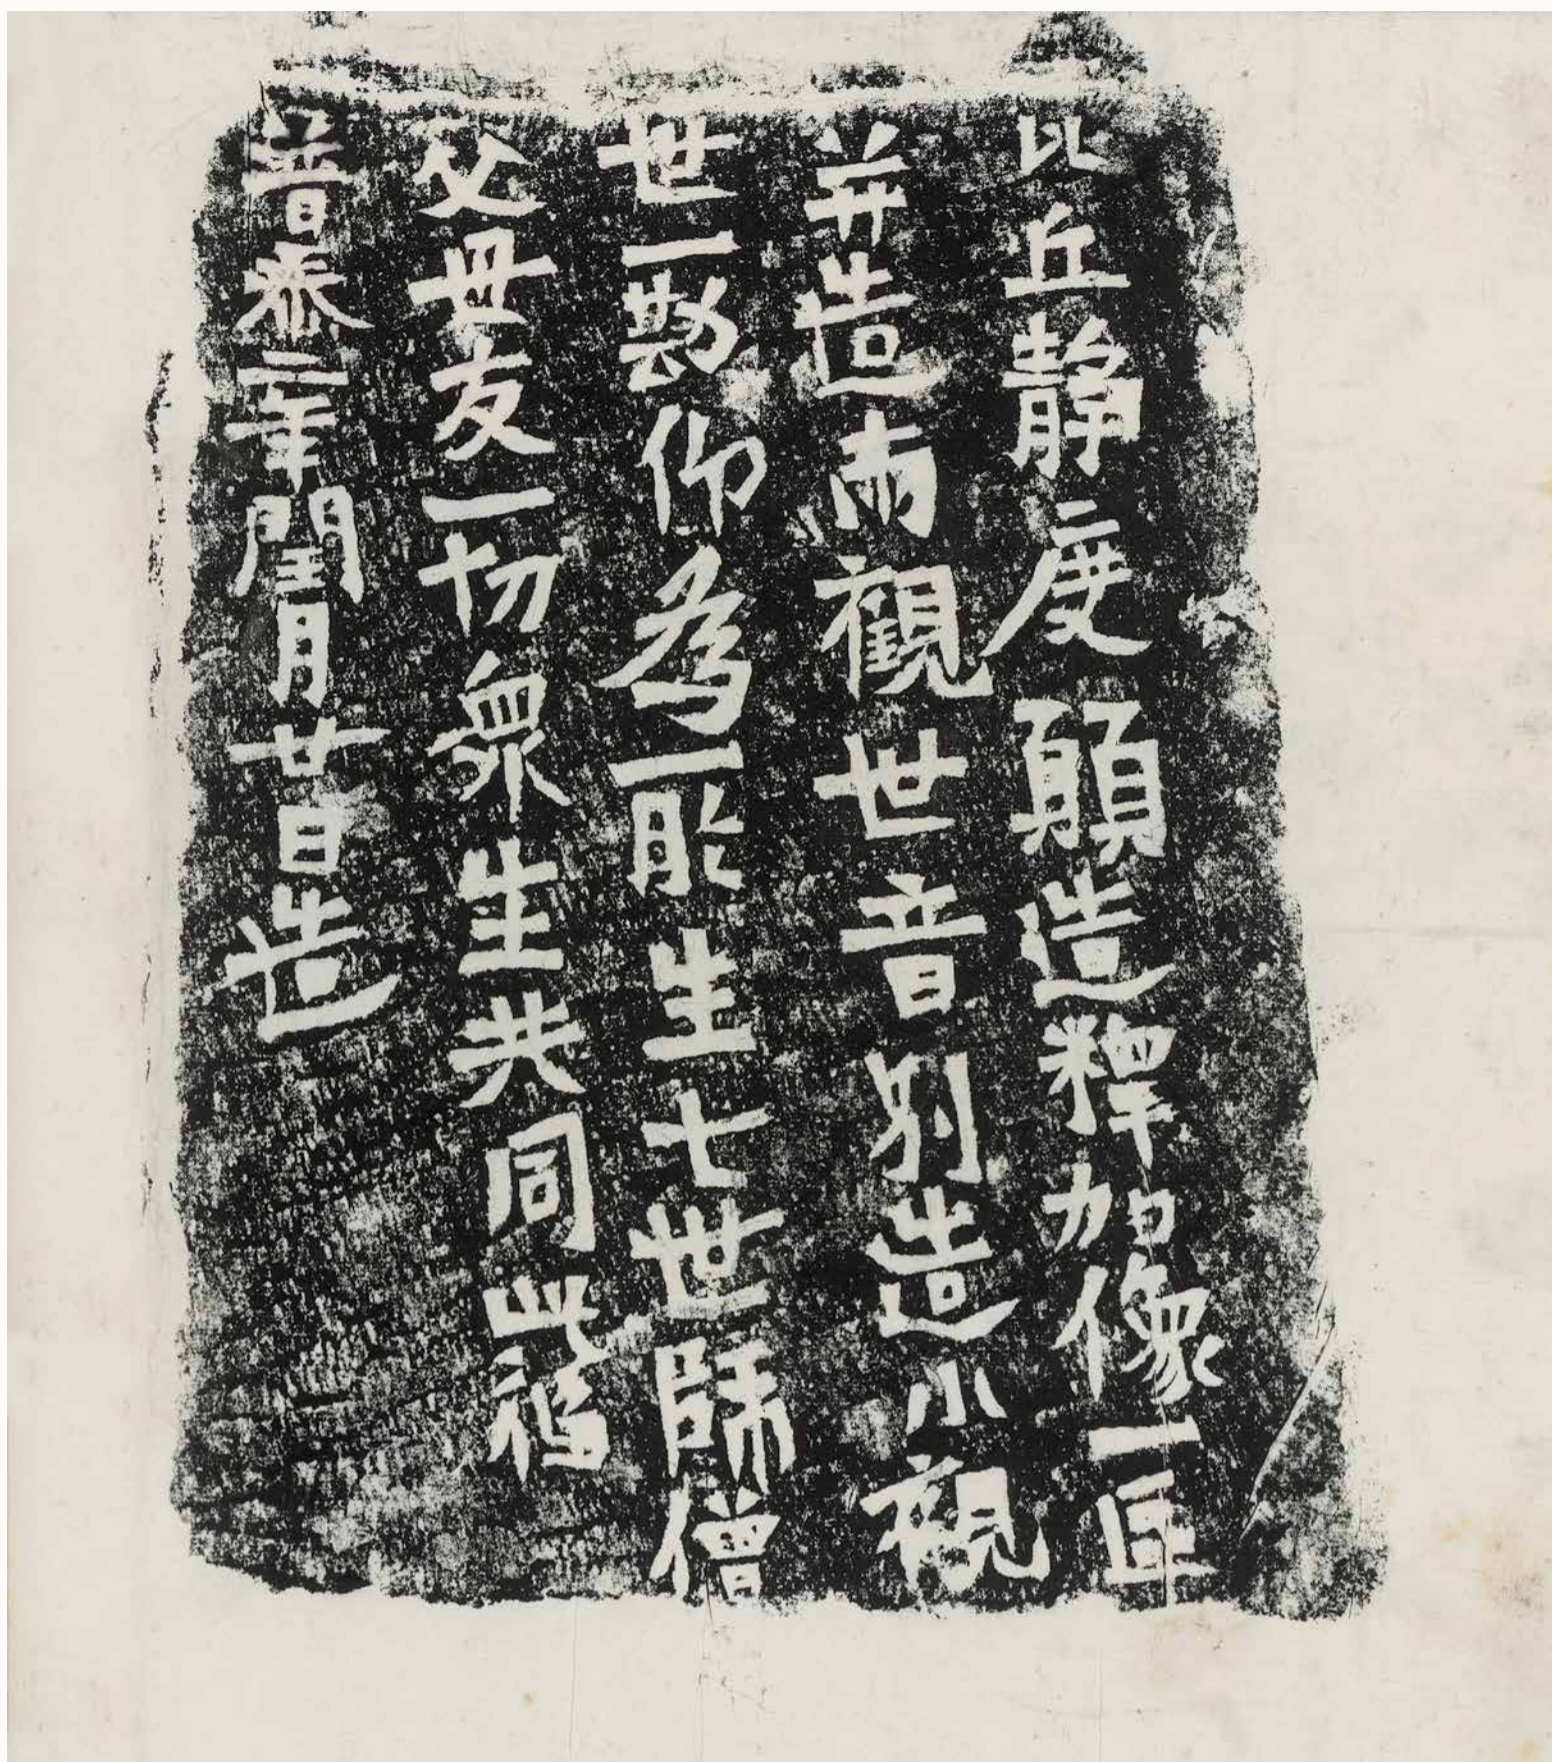 比丘靜度願造釋加像一區
并造兩觀世音別造小觀
世一勘仰為一形生七世師僧
父母友一切眾生共同此福
普泰二年閏月廿日造